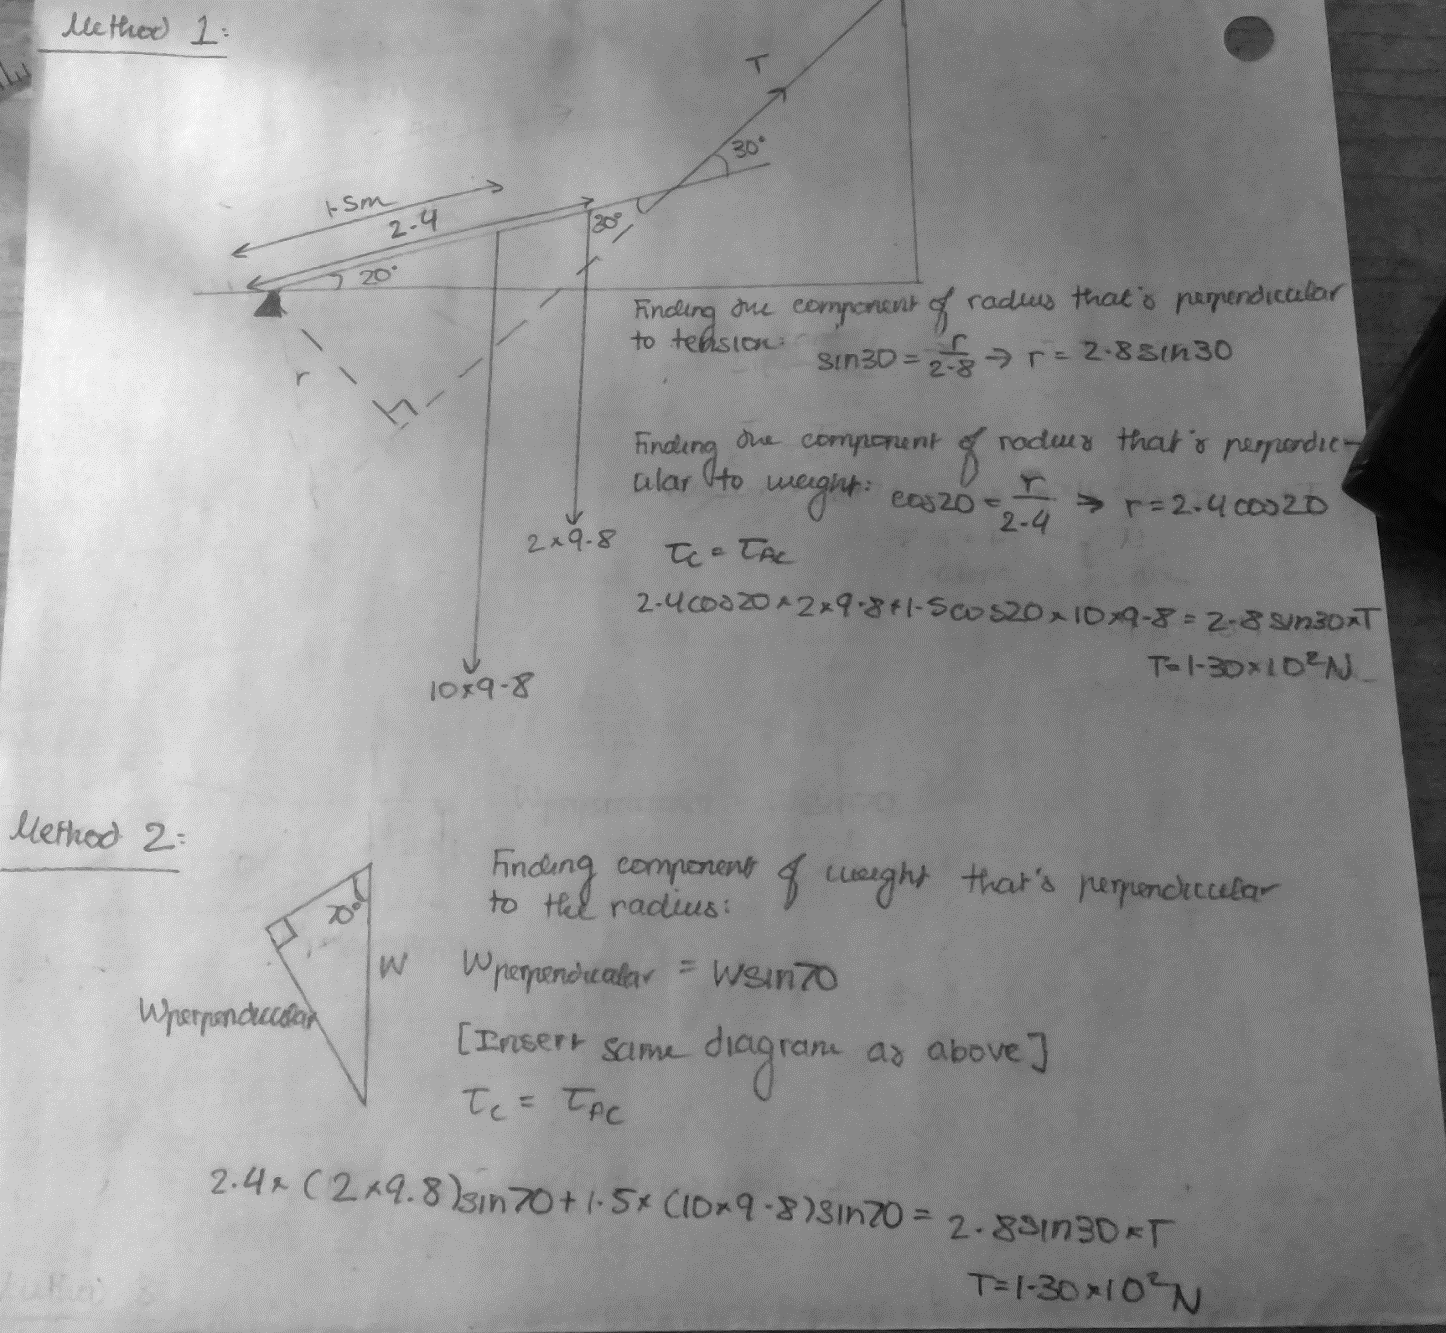 Method 1:
T
30°
1.5m
2.4
30°
20°
r
2×9.8
10×9.8
Finding the component of radius that's perpendicular
to tension: sin30 = r/2.8 ⇒ r = 2.8sin30
Finding the component of radius that's perpendic-
ular to weight: cos20 = r/2.4 ⇒ r = 2.4cos20
τc = τAC
2.4cos20×2×9.8+1.5cos20×10×9.8 = 2.8sin30×T
T=1.30×10²N
Method 2:
70°
W
Wperpendicular
Finding component of weight that's perpendicular
to the radius:
Wperpendicular = Wsin70
[Insert same diagram as above]
τc = τAC
2.4×(2×9.8)sin70+1.5×(10×9.8)sin70 = 2.8sin30×T
T=1.30×10²N